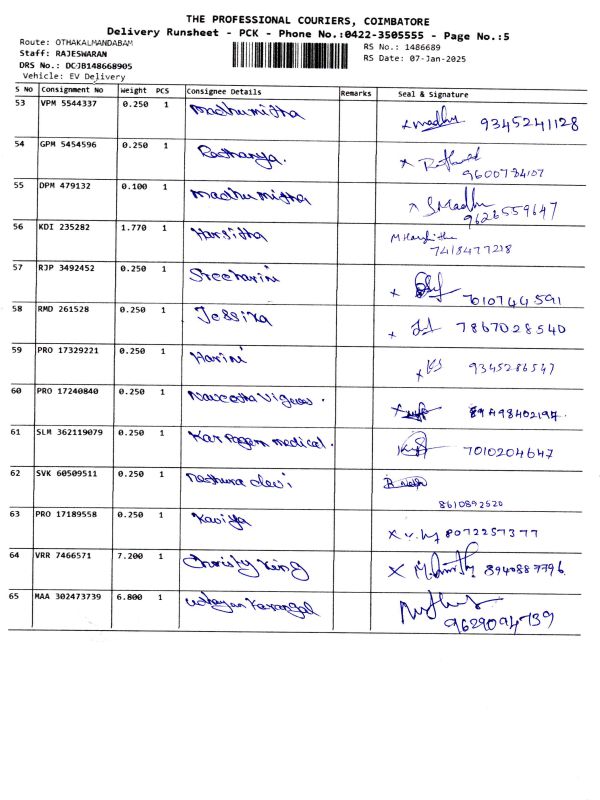 THE PROFESSIONAL COURIERS, COIMBATORE
Delivery Runsheet - PCK - Phone No.:0422-3505555 - Page No.:5
Route: OTHAKALMANDABAM
RS No.: 1486689
Staff: RAJESWARAN
RS Date: 07-Jan-2025
DRS No.: DCJB148668905
Vehicle: EV Delivery
S No Consignment No Weight PCS Consignee Details Remarks Seal & Signature
53 VPM 5544337 0.250 1 Madhumitha madhu 9345241128
54 GPM 5454596 0.250 1
55 DPM 479132 0.100 1 Madhumitha S.Madhu 9626559647
56 KDI 235282 1.770 1 Harsitha 7418477218
57 RJP 3492452 0.250 1 Sreeharini 7010744591
58 RMD 261528 0.250 1 7867028540
59 PRO 17329221 0.250 1 Harini KS 9345286547
60 PRO 17240840 0.250 1
61 SLM 362119079 0.250 1 medical. 7010204647
62 SVK 60509511 0.250 1 devi 8610892520
63 PRO 17189558 0.250 1 Kaviya 8072257377
64 VRR 7466571 7.200 1 Christy King 8940887796
65 MAA 302473739 6.800 1 9629094739